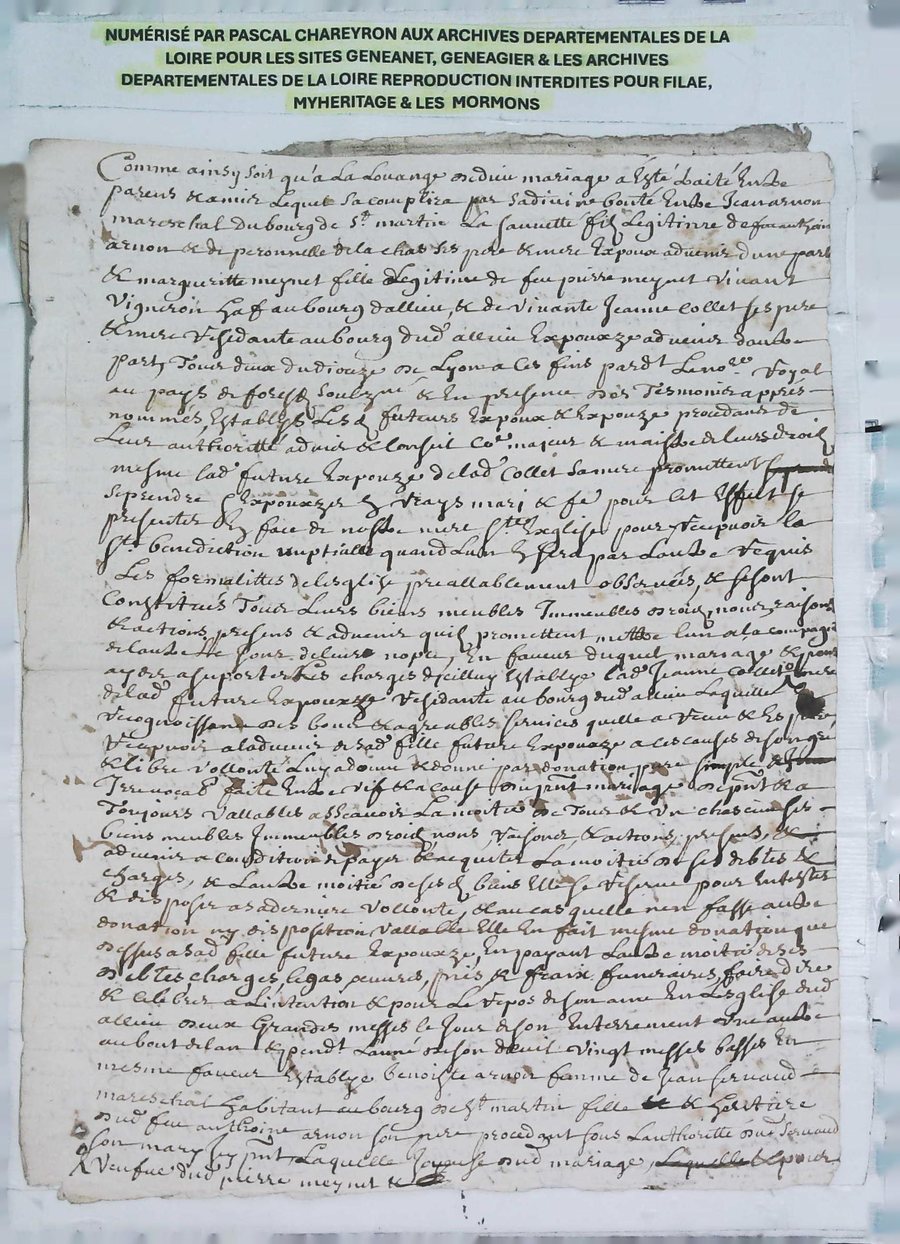 NUMÉRISÉ PAR PASCAL CHAREYRON AUX ARCHIVES DEPARTEMENTALES DE LA
LOIRE POUR LES SITES GENEANET, GENEAGIER & LES ARCHIVES
DEPARTEMENTALES DE LA LOIRE REPRODUCTION INTERDITES POUR FILAE,
MYHERITAGE & LES MORMONS
Comme ainsy soit qu'a La Louange de dieu mariage a Esté traité Entre
parens & amis Lequel sacomplira par sa divine bonté Entre Jean arnon
mareschal du bourg de St martin La sauveté filz Legitime de feu anthoine
arnon & de peronnelle de la chas ses pere & mere Expoux advenir d'une part
& marguerite meynet fille Legitime de feu pierre meynet vivant
vigneron hab au bourg dallieu & de vivante Jeanne Collet ses pere
& mere residante au bourg dud allieu Expouze advenir dautre
part, Tous deux du dioceze de Lyon a ces fins pardt Le nore Royal
au pays de forestz soubzné & En presence des Tesmoins appres
nommés, Establys Lesd futeurs Expoux & Expouze procedans de
Leur authoritté advis & conseil majeurs & maistre de leurs droitz
mesme lad future Expouze de lad Collet sa mere promettent
se prendre & Expouzer En vrays mari & fe pour cet Effect se
presenter En face de nostre mere Ste Esglise pour recepvoir la
Ste benediction nuptialle quand Lun En sera par Lautre requis
Les formalittes de lesglise preallablement observées, & se sont
Constitués Tous Leurs biens meubles Immeubles droitz noms raisons
& actions, presens & advenir quilz promettent mettre lun a la compagnie
de lautre le Jour de leurs nopces, En faveur duquel mariage & pour
ayder a suporter les charges dicelluy Establye lad Jeanne Collet mere
de lad future Expouze residante au bourg dud allieu Laquelle
recognoissant des bons & agreables services quelle a receu & Espere
recepvoir a ladvenir de sad fille future Expouze a ces causes de son gré
& libre vollonté Luy a donné & donne par donation pure simple &
Irrevocab faite Entre vif & a cause du pnt mariage de pnt & a
Toujours vallables a scavoir La moitié de Tous & un chascuns ses
biens meubles Immeubles droitz noms raisons & actions, presens, &
advenir a condition de payer & acquiter La moitié de ses debtes &
charges, & Lautre moitié de sesd biens Elle se reserve pour En tester
& disposer a sa derniere vollonté, & au cas quelle nen fasse autre
donation ny disposition vallable Elle En fait mesme donation que
dessus a sad fille future Expouze, En payant Lautre moitié de ses
debtes, charges, legas, œuvres, pris & fraix funeraires, faire dire
& Celebrer a Lintention & pour Le repos de son ame En Lesglise dud
allieu deux Grandes messes le Jour de son Enterrement une autre
au bout de lan & pendt Lanné de son deuil vingt messes basses En
mesme faveur Establye benoiste arnon femme de Jean servaud
mareschal habitant au bourg de St martin fille & heritiere
dud feu anthoine arnon son pere procedant sous Lauthoritté dud servaud
son mary Icy pnt Laquelle Joyeuse dud mariage, & pour
veufue dud pierre meynet